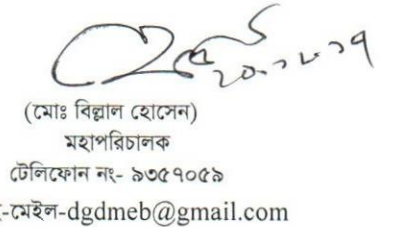 ২০.১২.১৭
(মোঃ বিল্লাল হোসেন)
মহাপরিচালক
টেলিফোন নং- ৯৩৫৭০৫৯
-মেইল-dgdmeb@gmail.com